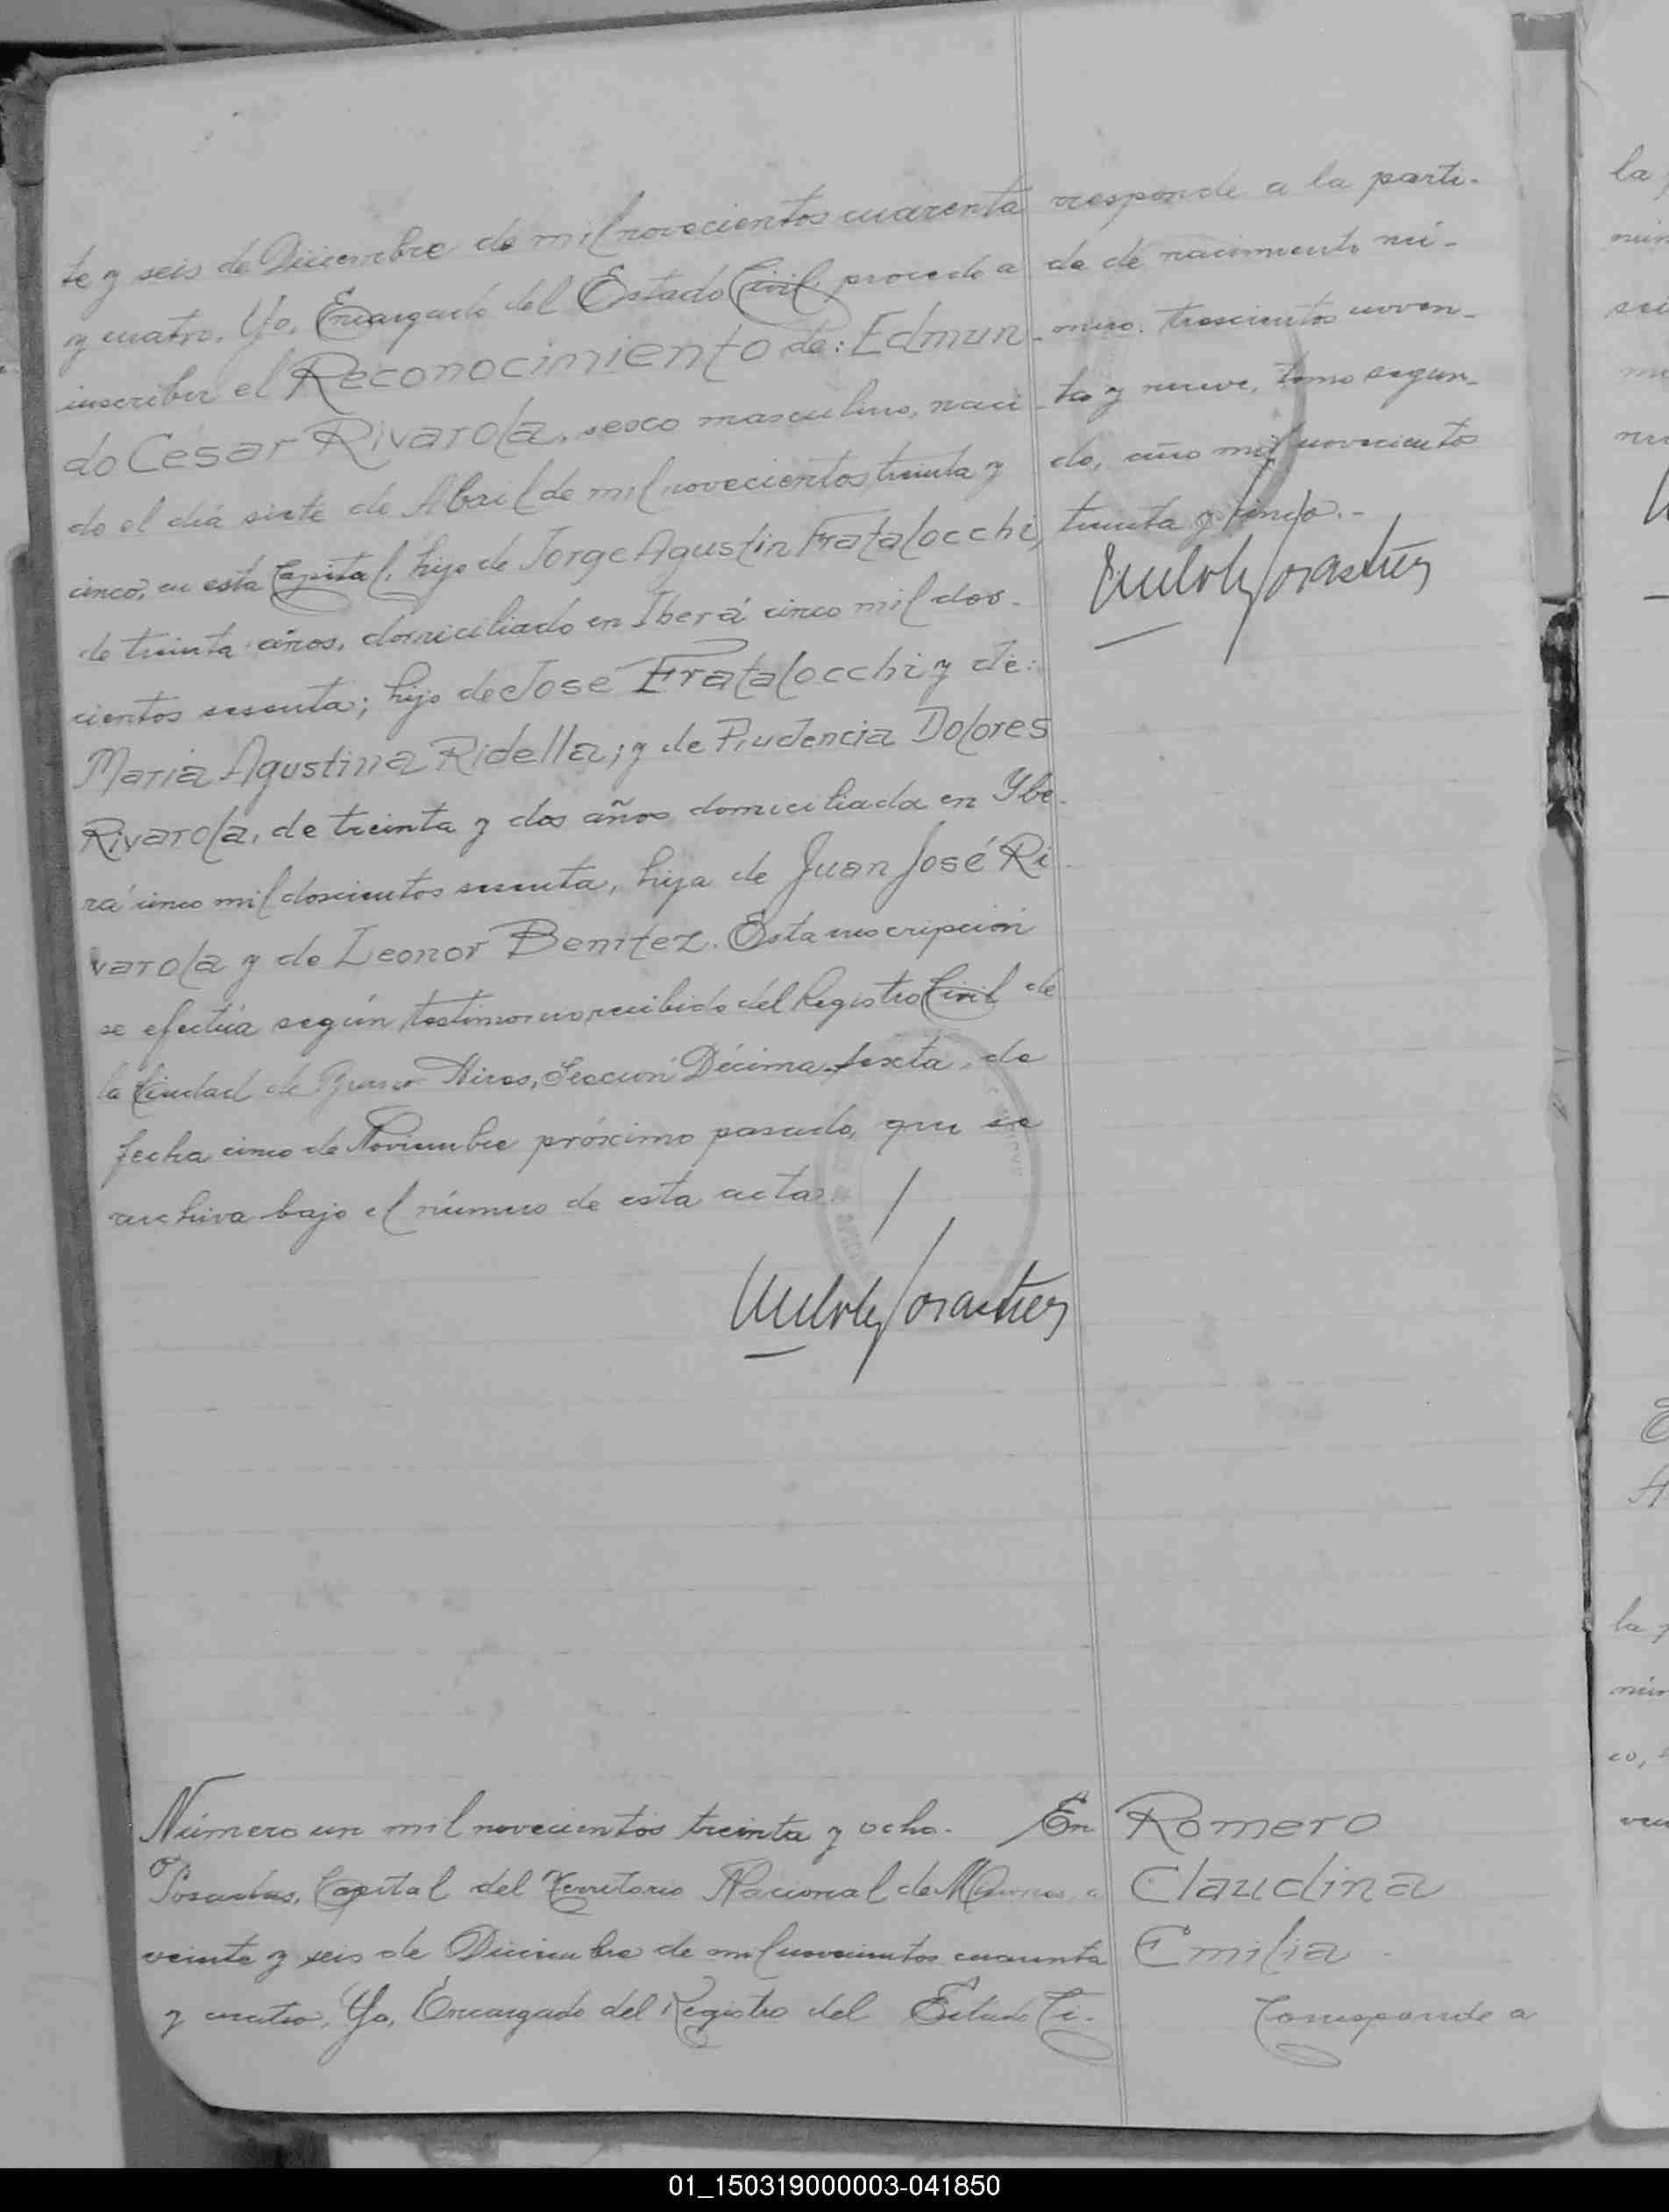 te y seis de Diciembre de mil novecientos cuarenta
y cuatro, Yo, Encargado del Estado Civil, procedo a
inscribir el Reconocimiento de: Edmun-
do César Rivarola, sexo masculino, naci-
do el día siete de Abril de mil novecientos treinta y
cinco, en esta Capital, hijo de Jorge Agustin Fratalocchi,
de treinta años, domiciliado en Iberá cinco mil dos-
cientos sesenta; hijo de José Fratalocchi y de:
Maria Agustina Ridella; y de Prudencia Dolores
Rivarola, de treinta y dos años domiciliada en Ybe-
rá cinco mil doscientos sesenta, hija de Juan José Ri-
varola y de Leonor Benítez. Esta inscripción
se efectúa según testimonio recibido del Registro Civil de
la Ciudad de Buenos Aires, Sección Décima sexta, de
fecha cinco de Noviembre próximo pasado, que se
archiva bajo el número de esta acta.
rresponde a la parti-
da de nacimiento nú-
mero: trescientos noven-
ta y nueve, tomo segun-
do, año mil novecientos
treinta y cinco.-
Número un mil novecientos treinta y ocho. En
Posadas, Capital del Territorio Nacional de Misiones, a
veinte y seis de Diciembre de mil novecientos cuarenta
y cuatro, Yo, Encargado del Registro del Estado Ci-
Romero
Claudina
Emilia
Corresponde a
la
la
01_150319000003-041850